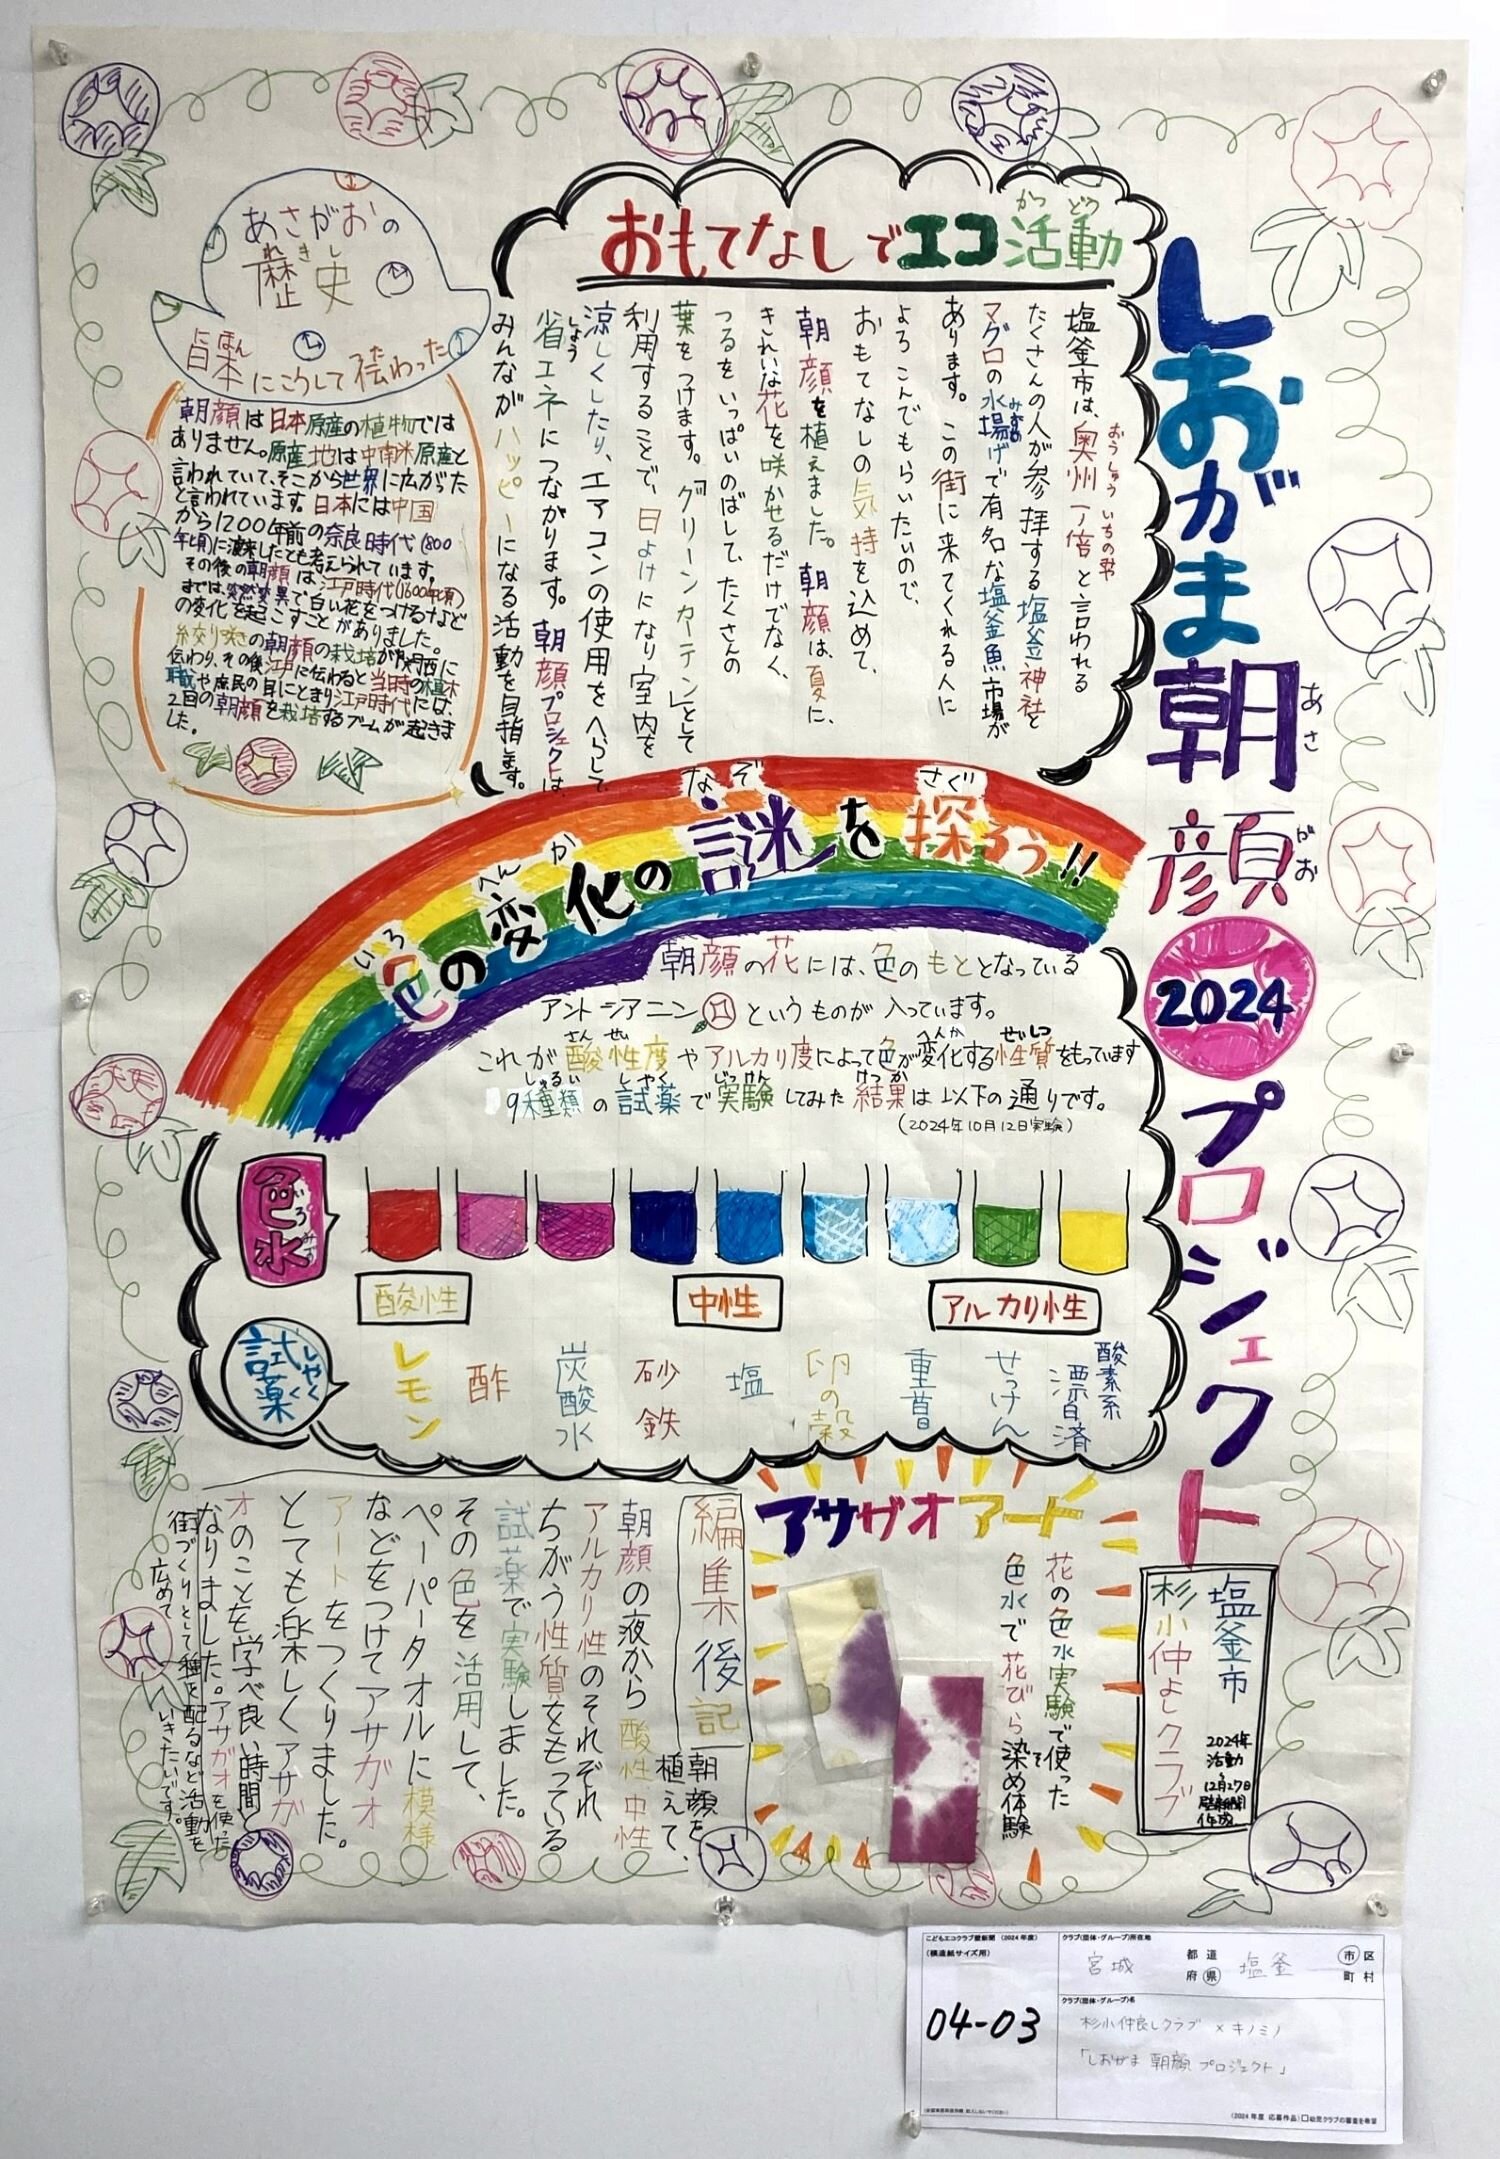 しおがま朝顔2024プロジェクト
あさ
がお
塩釜市
杉小仲よしクラブ
2024年
活動
12月27日
壁新聞
作成
おもてなしでエコ活動
かつ どう
塩釜市は、奥州一の宮と言われる
おうしゅう いちのみや
たくさんの人が参拝する塩釜神社と
マグロの水揚げで有名な塩釜魚市場が
みずあ
あります。この街に来てくれる人に
よろこんでもらいたいので、
おもてなしの気持を込めて、
朝顔を植えました。朝顔は、夏に、
きれいな花を咲かせるだけでなく、
つるをいっぱいのばして、たくさんの
葉をつけます。「グリーンカーテン」として
利用することで、日よけになり室内を
涼しくしたり、エアコンの使用をへらして、
省エネにつながります。朝顔プロジェクトは、
しょう
みんながハッピーになる活動を目指します。
あさがおの
れきし
歴史
日本にこうして伝わった
にほん
朝顔は日本原産の植物では
ありません。原産地は中南米原産と
言われていて、そこから世界に広がった
と言われています。日本には中国
から1200年前の奈良時代(800
年頃)に渡来したとも考えられています。
その後の朝顔は、江戸時代(1600年頃)
までは、突然変異で白い花をつけるなど
の変化を起こすことがありました。
絞り咲きの朝顔の栽培が関西に
伝わり、その後江戸に伝わると当時の植木
職や庶民の目にとまり江戸時代には、
2回の朝顔を栽培するブームが起きま
した。
いろ へんか なぞ さぐ
色の変化の謎を探ろう!!
朝顔の花には、色のもととなっている
アントシアニンというものが入っています。
さんせい へんか せいしつ
これが酸性度やアルカリ度によって色が変化する性質をもっています
しゅるい しやく じっけん けっか
9種類の試薬で実験してみた結果は以下の通りです。
(2024年10月12日実験)
色水
いろみず
酸性 中性 アルカリ性
試薬
しやく
レモン
酢
炭酸水
砂鉄
塩
卵の殻
重曹
せっけん
酸素系漂白済
アサガオアート
花の色水実験で使った
色水で花びら染め体験
そ
編集後記
朝顔を
植えて、
朝顔の液から酸性中性
アルカリ性のそれぞれ
ちがう性質をもっている
試薬で実験しました。
その色を活用して、
ペーパータオルに模様
などをつけてアサガオ
アートをつくりました。
とても楽しくアサガ
オのことを学べ良い時間と
なりました。アサガオを使った
街づくりとして種を配るなど活動を
広めていきたいです。
こどもエコクラブ壁新聞 (2024年度)
(模造紙サイズ用)
04-03
クラブ(団体・グループ)所在地
宮城 都道府県 塩釜 市区町村
クラブ(団体・グループ)名
杉小仲良しクラブ×キノミノ
「しおがま朝顔プロジェクト」
(2024年度 応募作品)□幼児クラブの審査を希望